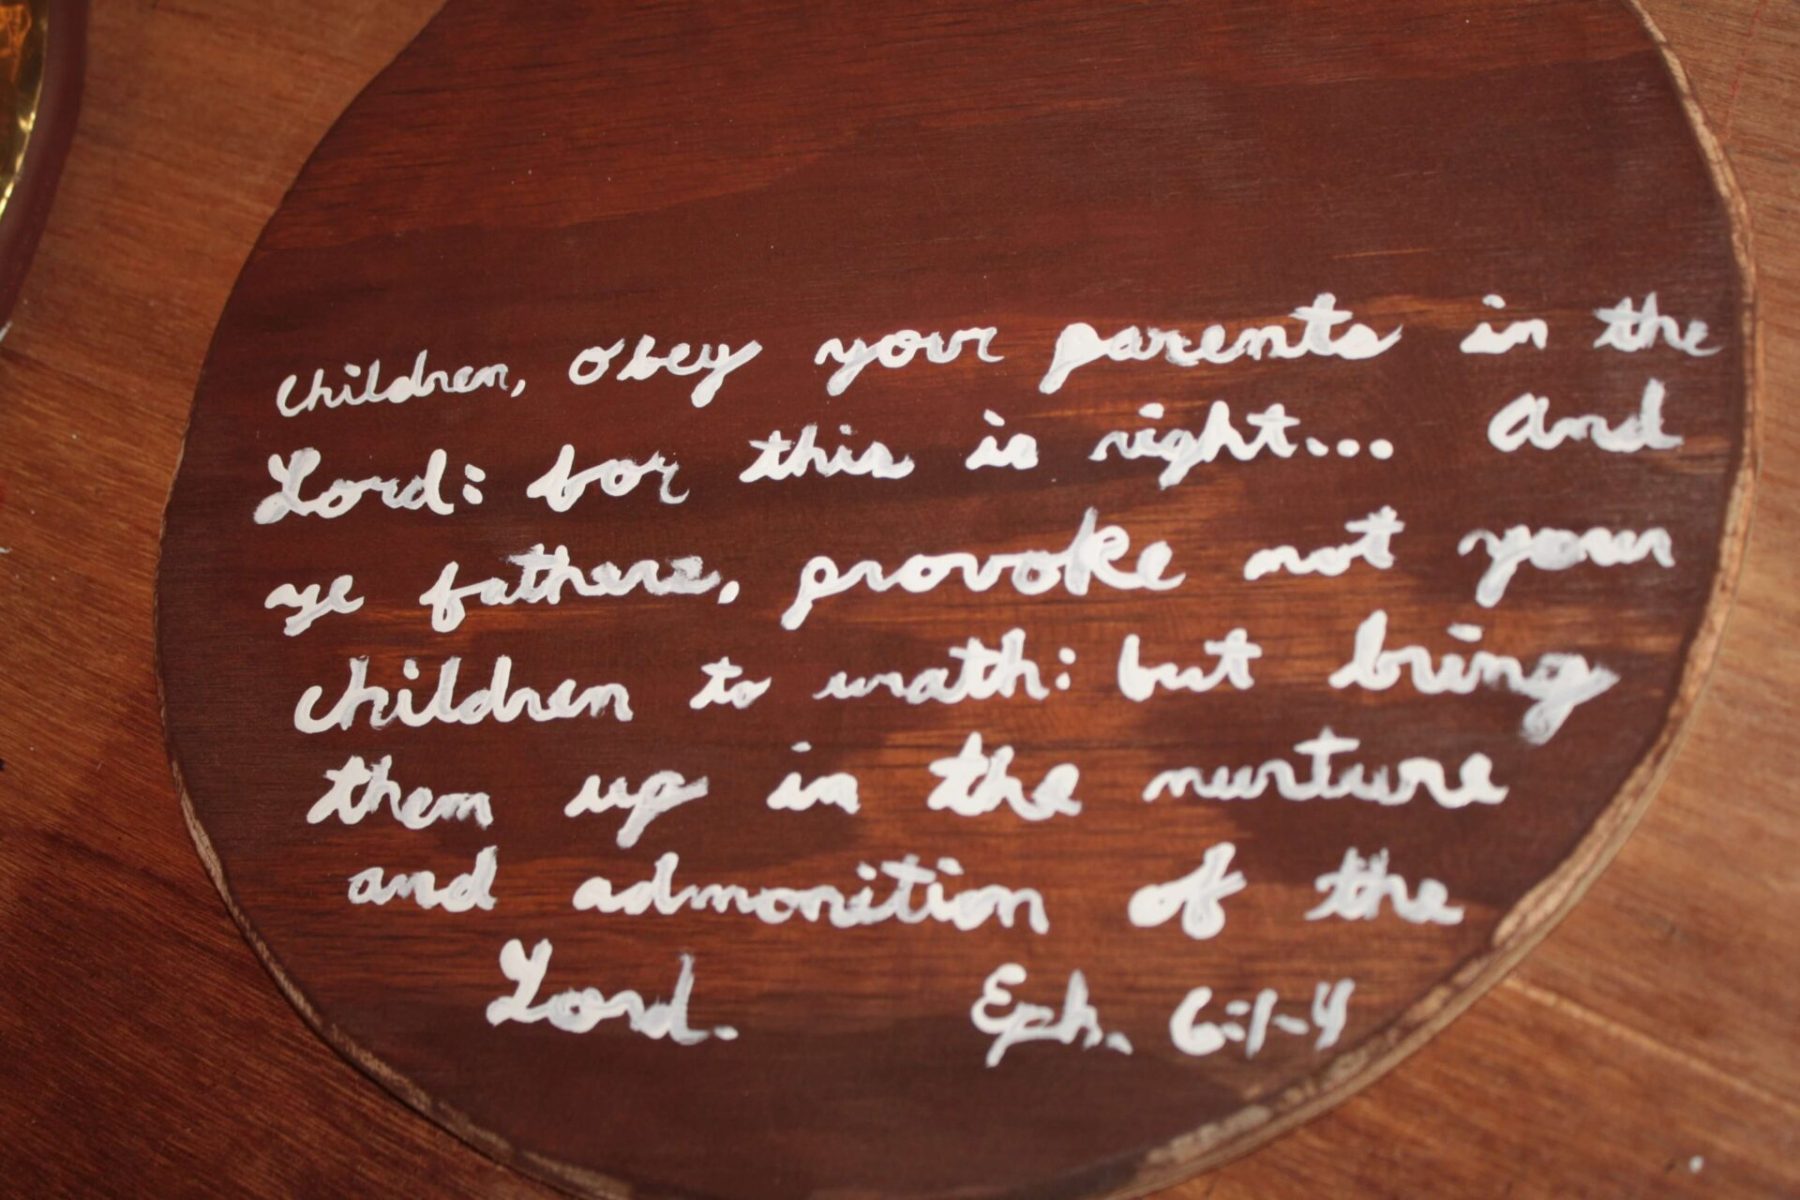 Children, obey your parents in the
Lord: for this is right... And
ye fathers, provoke not your
children to wrath: but bring
them up in the nurture
and admonition of the
Lord. Eph. 6:1-4